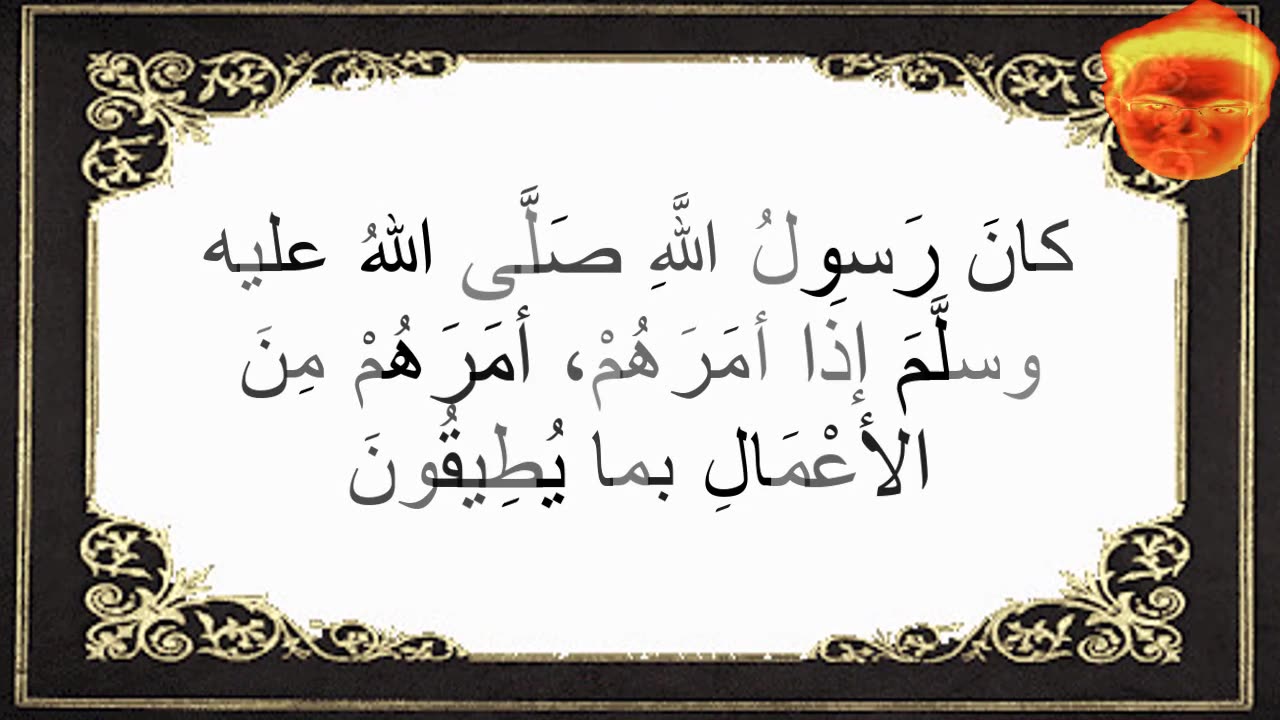 كانَ رَسولُ اللَّهِ صَلَّى اللهُ عليه
وسلَّمَ إذَا أمَرَهُمْ، أمَرَهُمْ مِنَ
الأعْمَالِ بما يُطِيقُونَ